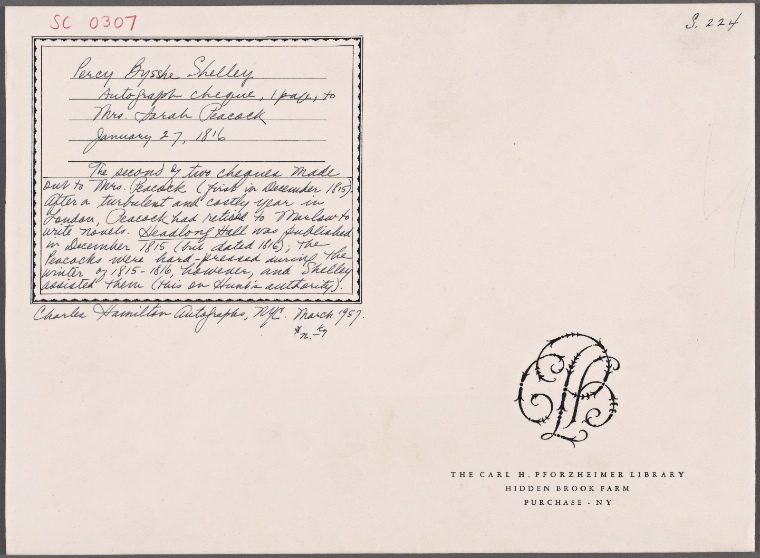 SC 0307
S. 224
Percy Bysshe Shelley
Autograph cheque, 1 page, to
Mrs. Sarah Peacock
January 27, 1816
The second of two cheques made
out to Mrs. Peacock (first in December 1815).
After a turbulent and costly year in
London, Peacock had retired to Marlow to
write novels. Headlong Hall was published
in December 1815 (but dated 1816); the
Peacocks were hard-pressed during the
winter of 1815-1816, however, and Shelley
assisted them (this on Hunt's authority).
Charles Hamilton Autographs, NYC. March 1957.
THE CARL H. PFORZHEIMER LIBRARY
HIDDEN BROOK FARM
PURCHASE - NY